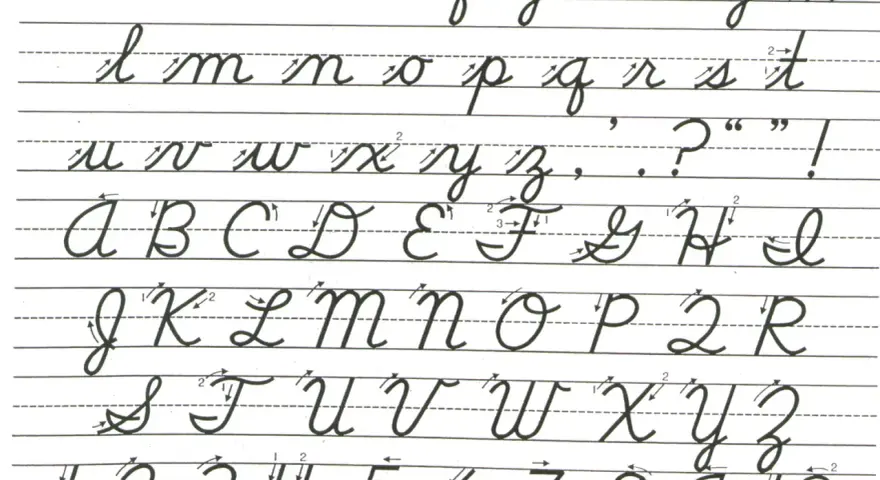 l m n o p q r s t
u v w x y z , ’ . ? “ ” !
A B C D E F G H I
J K L M N O P Q R
S T U V W X Y Z